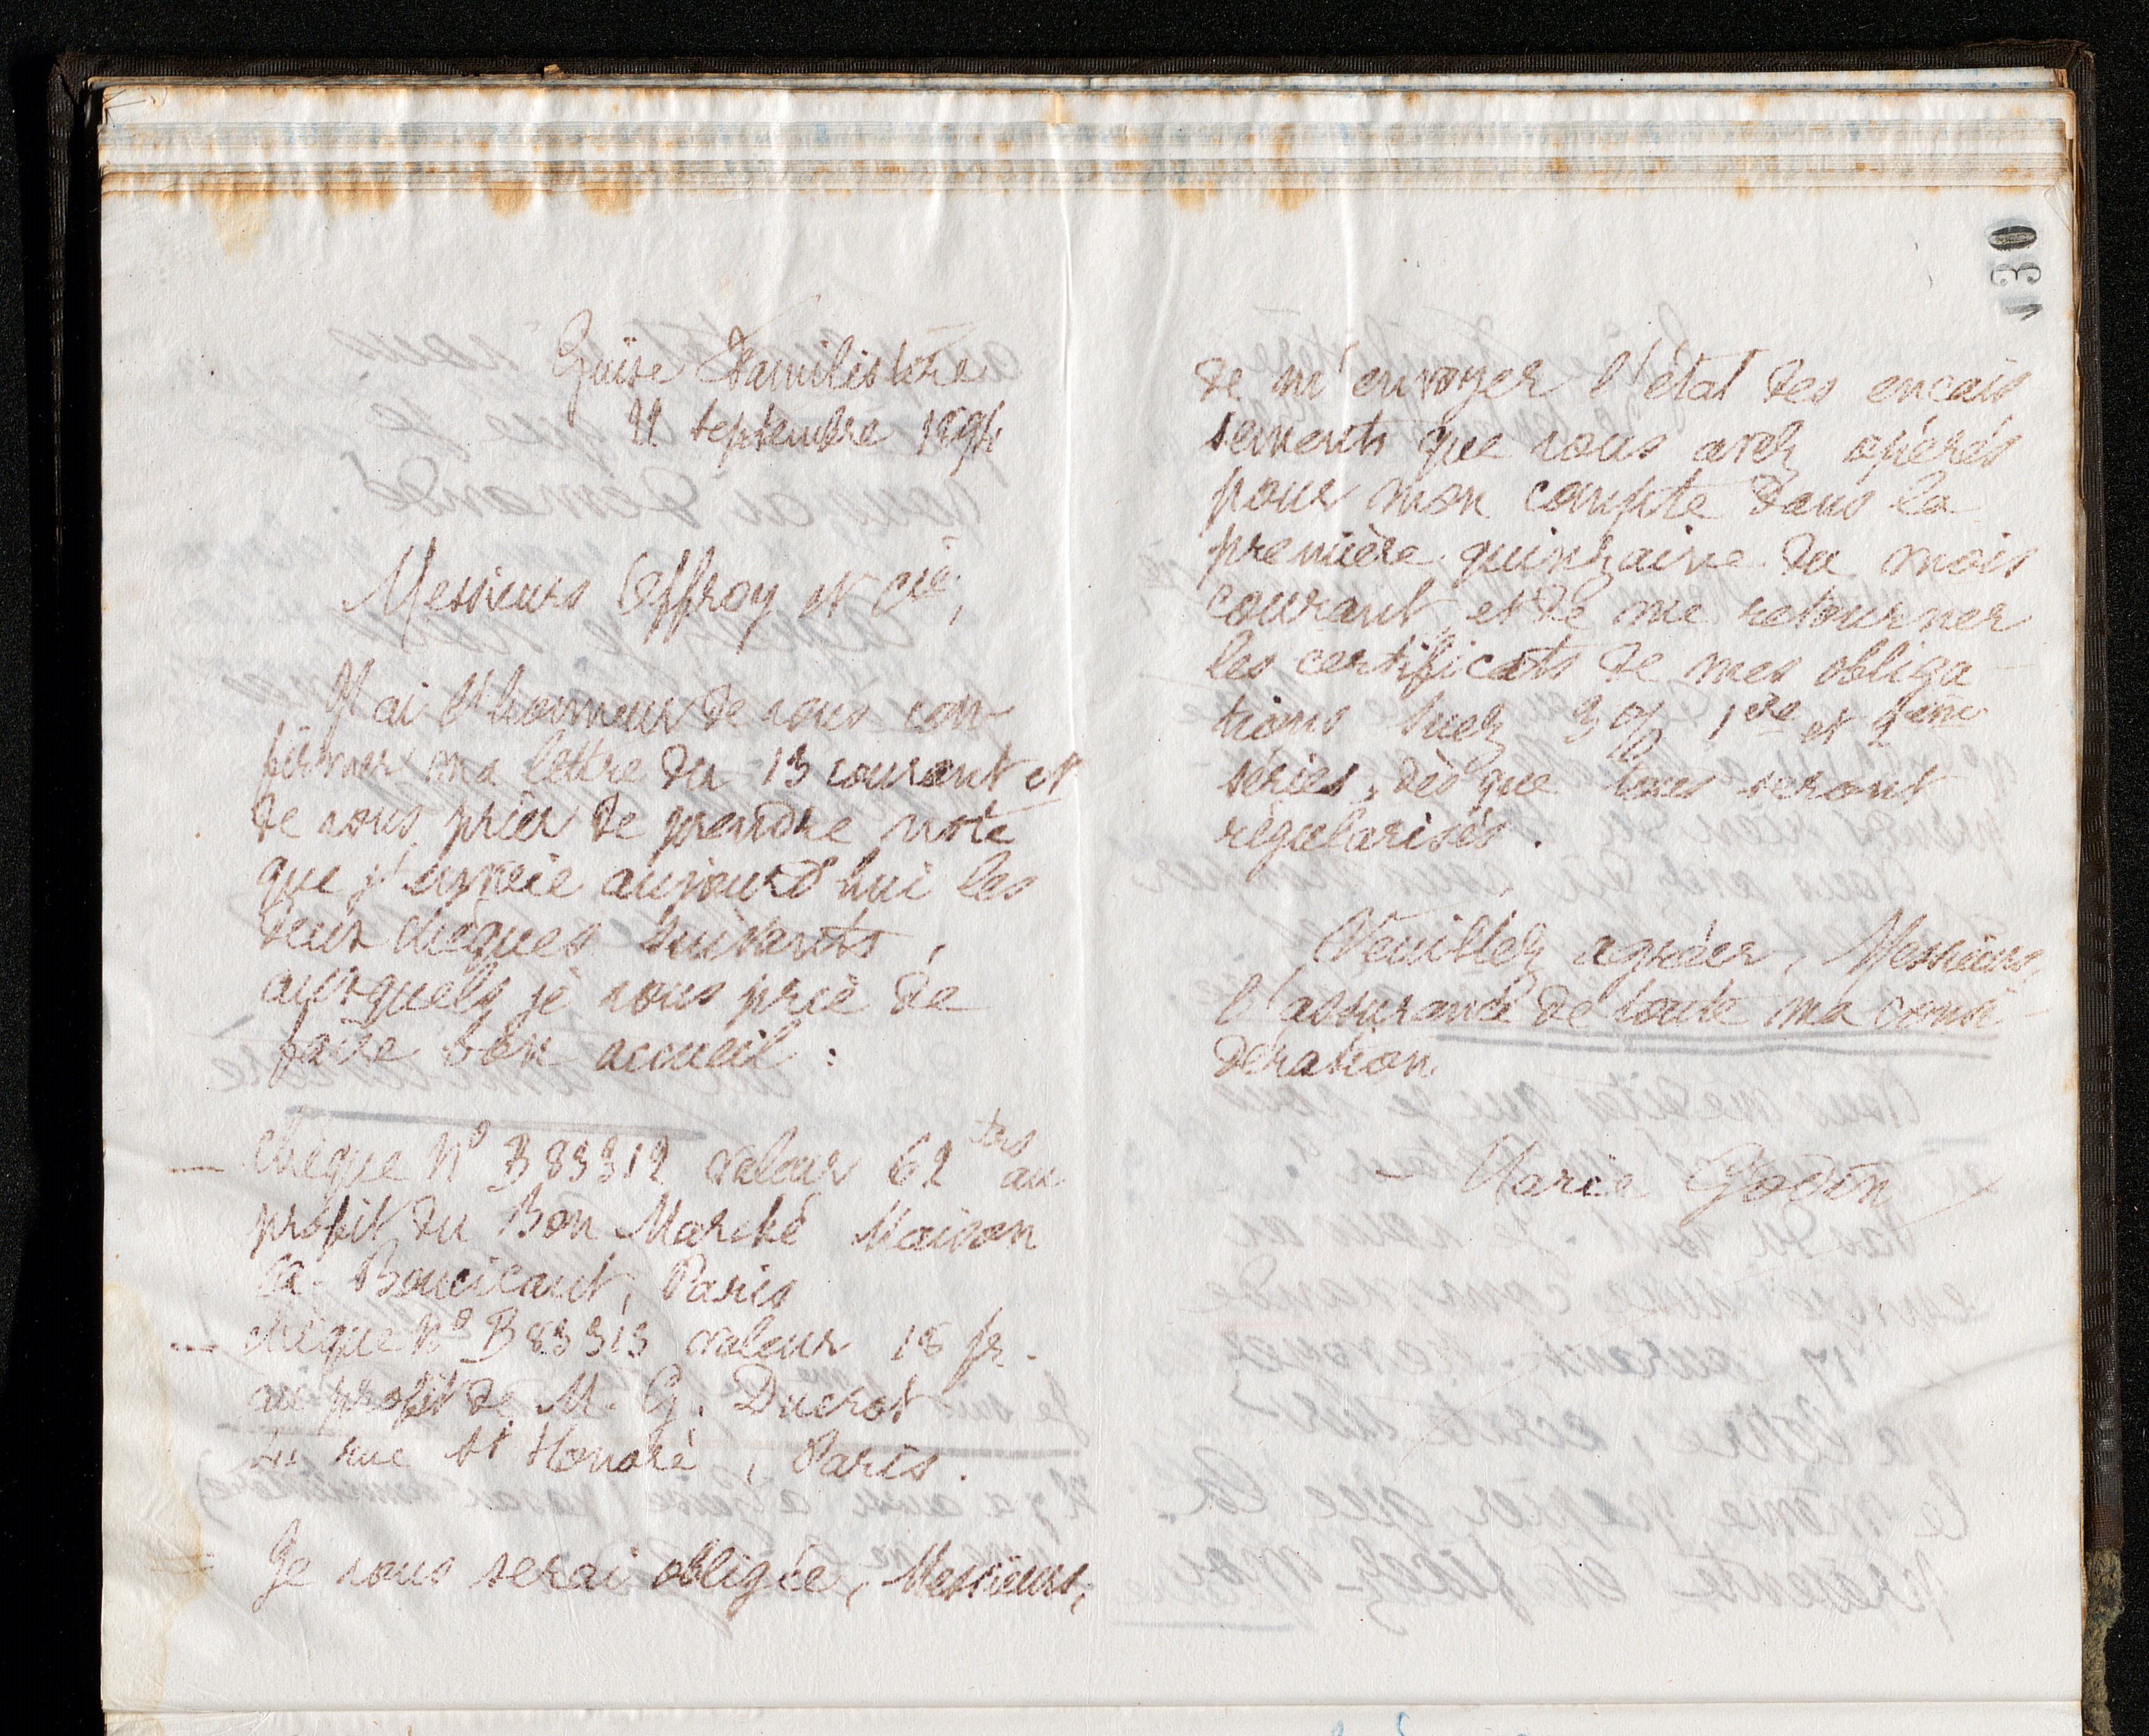 Guise Familistère
21 septembre 1894
Messieurs Offroy et Cie,
J'ai l'honneur de vous con-
firmer ma lettre du 13 courant et
de vous prier de prendre note
que j'envoie aujourd'hui les
deux chèques suivants,
auxquels je vous prie de
faire bon accueil :
— Chèque No B83312 valeur 62 au
profit du Bon Marché Maison
A. Boucicaut, Paris
— chèque No B83313 valeur 18 fr.
au profit de M. G. Ducrot
rue St Honoré, Paris.
Je vous serai obligée, Messieurs,
130
de m'envoyer l'état des encais
sements que vous avez opérés
pour mon compte dans la
première quinzaine du mois
courant, et de me retourner
les certificats de mes obliga-
tions Suez 3% 1ère et 2ème
séries, dès que tous seront
régularisés.
Veuillez agréer, Messieurs,
l'assurance de toute ma consi-
dération.
Marie Godin